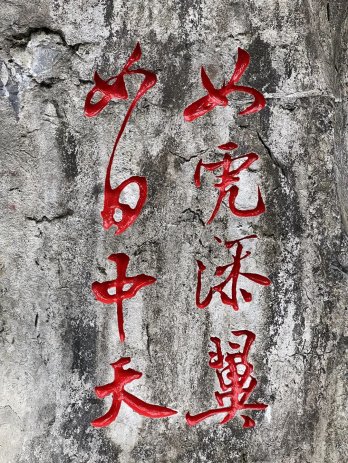 如虎添翼
如日中天